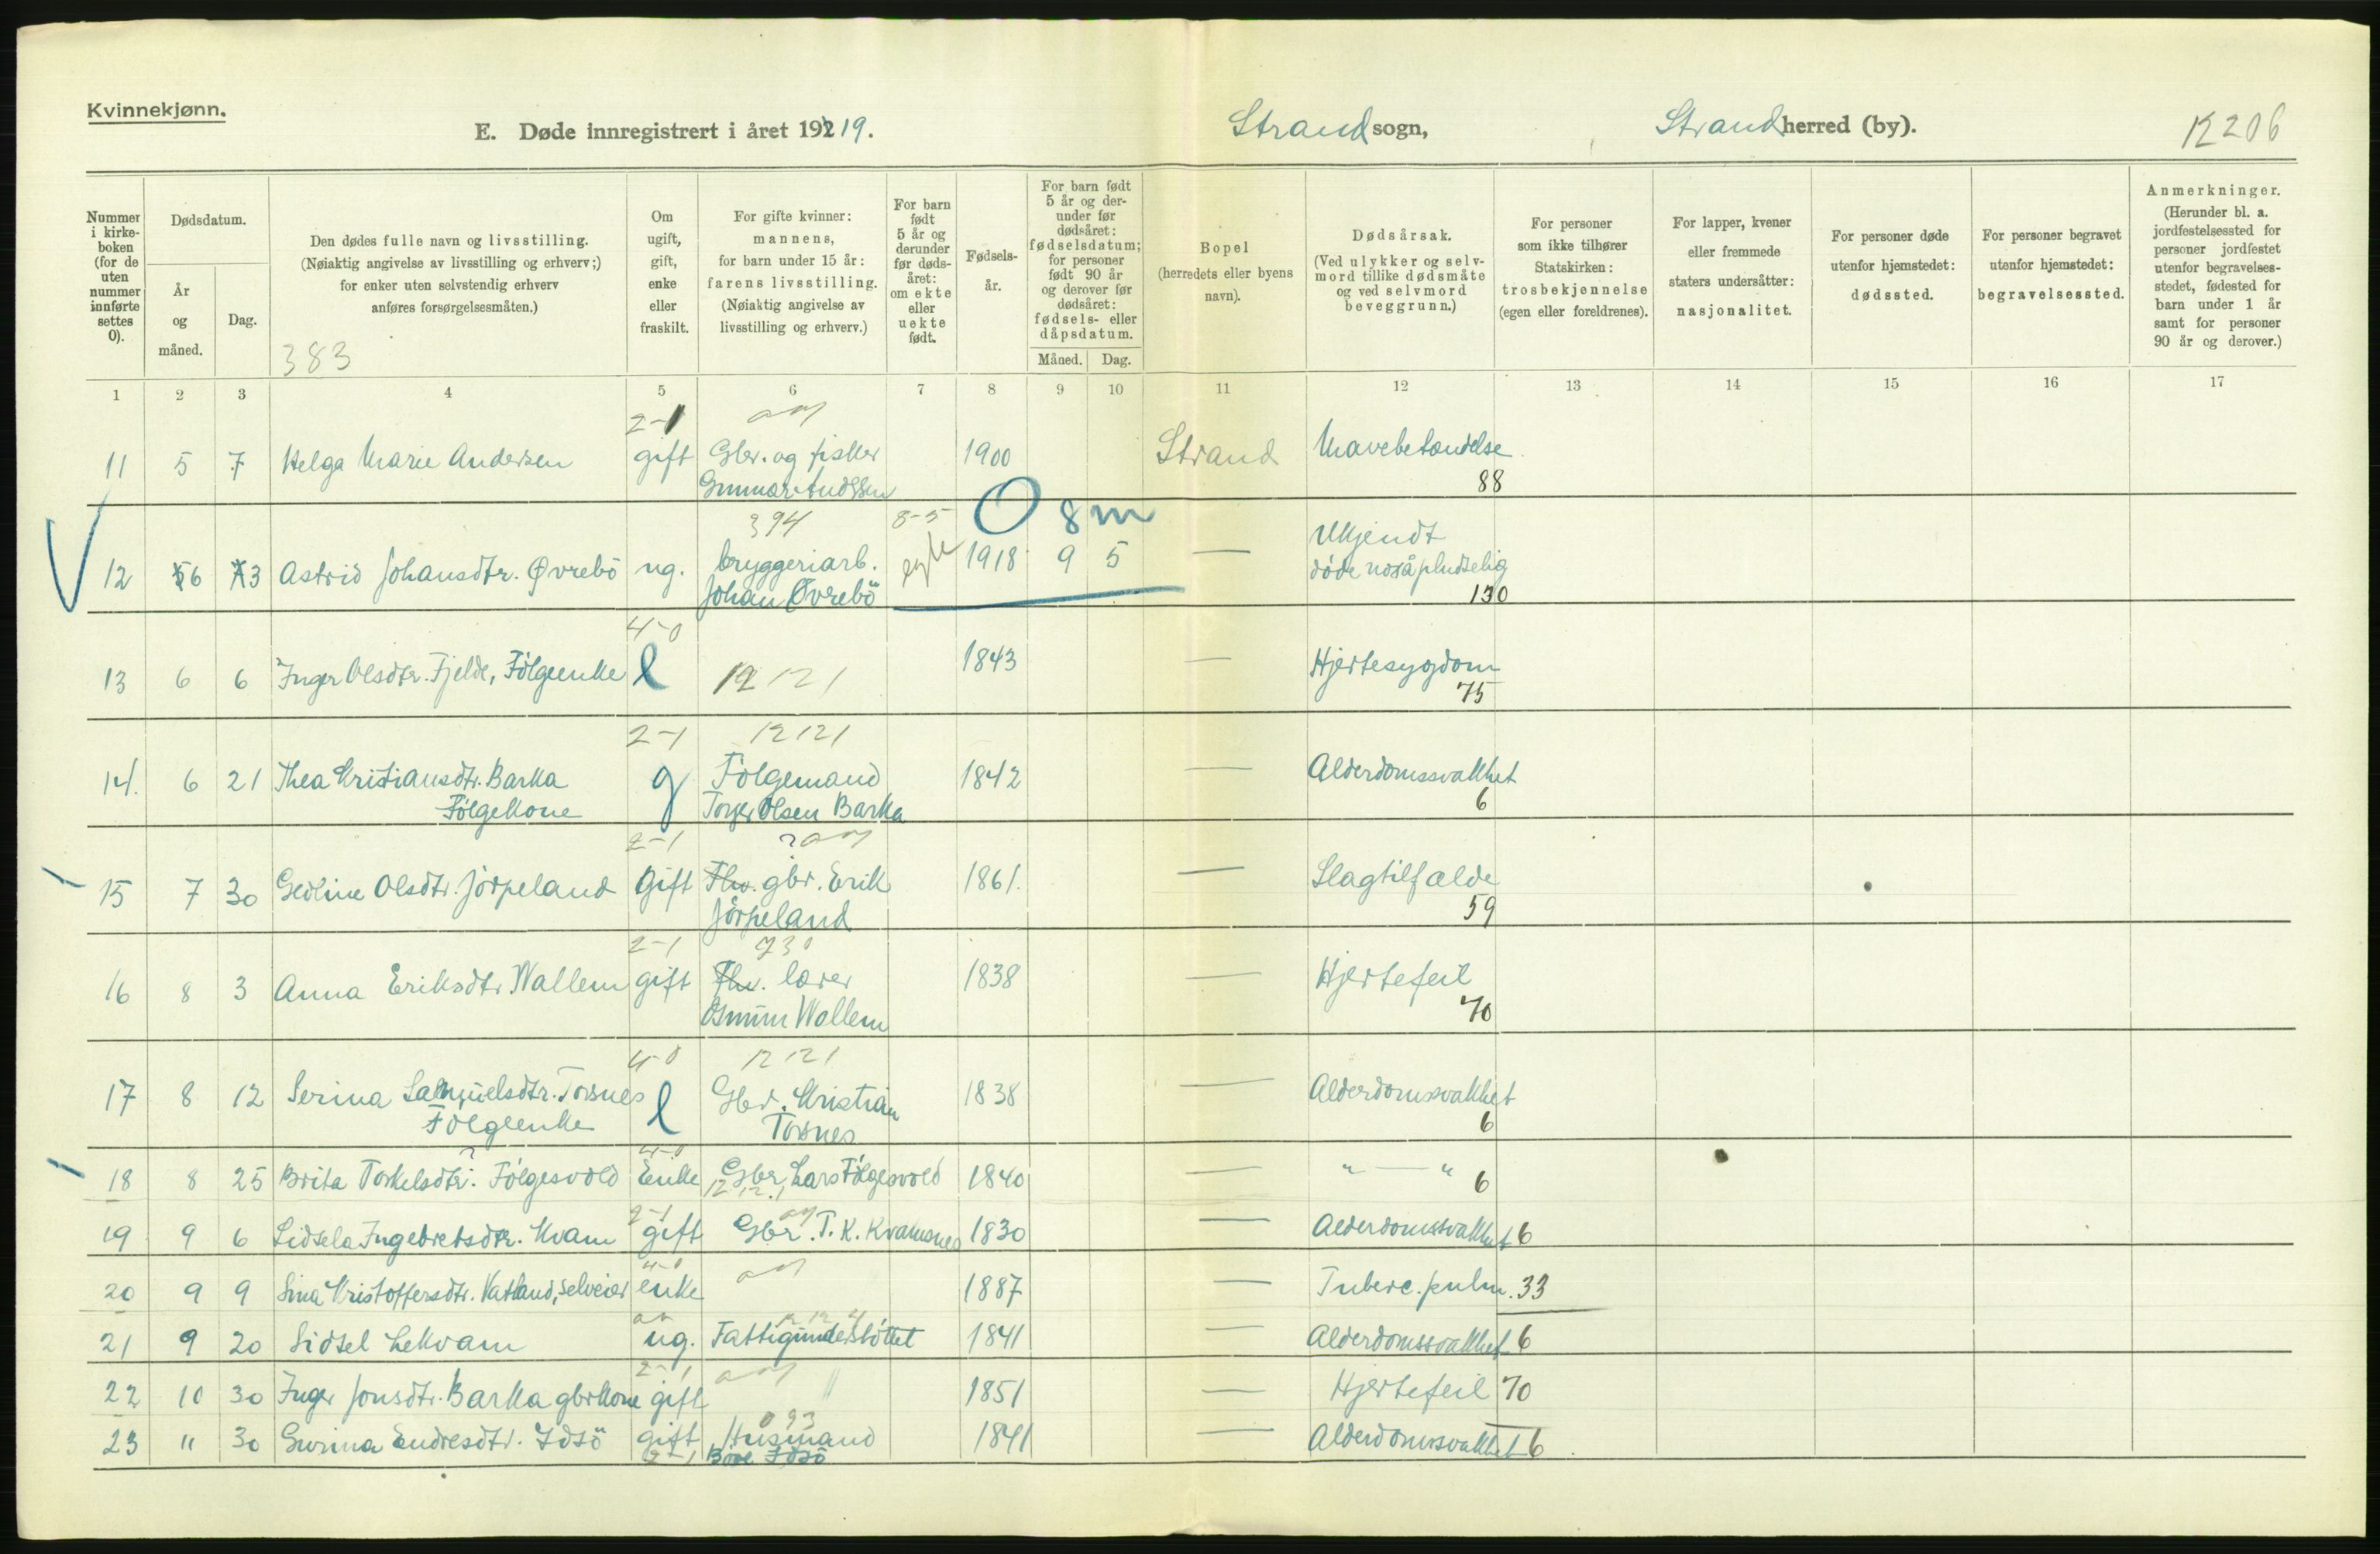 Kvinnekjønn.
E. Døde innregistrert i året 1919.
Strand sogn,
Strand herred (by).
1220b
Nummer i kirke-boken (for de uten nummer innførte settes 0).
Dødsdatum.
År og måned.
Dag.
Den dødes fulle navn og livsstilling.
(Nøiaktig angivelse av livsstilling og erhverv;)
for enker uten selvstendig erhverv
anføres forsørgelsesmåten.)
383
Om ugift, gift, enke eller fraskilt.
For gifte kvinner: mannens, for barn under 15 år: farens livsstilling. (Nøiaktig angivelse av livsstilling og erhverv.)
For barn født 5 år og derunder før døds-året: om ekte eller uekte født.
Fødsels-år.
For barn født 5 år og der-under før dødsåret: fødselsdatum; for personer født 90 år og derover før dødsåret: fødsels- eller dåpsdatum.
Måned. Dag.
Bopel (herredets eller byens navn).
Dødsårsak. (Ved ulykker og selv-mord tillike dødsmåte og ved selvmord beveggrunn.)
For personer som ikke tilhører Statskirken: trosbekjennelse (egen eller foreldrenes).
For lapper, kvener eller fremmede staters undersåtter: nasjonalitet.
For personer døde utenfor hjemstedet: dødssted.
For personer begravet utenfor hjemstedet: begravelsessted.
Anmerkninger. (Herunder bl. a. jordfestelsessted for personer jordfestet utenfor begravelses-stedet, fødested for barn under 1 år samt for personer 90 år og derover.)
1 2 3 4 5 6 7 8 9 10 11 12 13 14 15 16 17
2-1
11 5 7 Helga Marie Andersen gift Gbr. og fisker 1900 Strand Mavebetændelse
88
394 8-5 O 8m
12 6 3 Astrid Johansdtr. Øvrebö ug. bryggeriarb. egte 1918 9 5 — Ukjendt
Johan Øvrebö døde nosåpludselig
130
4-0
13 6 6 Inger Olsdtr. Fjelde, Følgeenke e 12121 1843 — Hjertesygdom
75
2-1 12121
14. 6 21 Thea Kristiansdtr. Barka g Følgemand 1842 — Alderdomssvakhet
Følgekone Torger Olsen Barka 6
2-1
15 7 30 Gedline Olsdtr. Jörpeland Gift Fhv. gbr. Erik 1861. — Slagtilfælde
Jörpeland 59
2-1 730
16 8 3 Anna Eriksdtr Wallem gift Fhv. lærer 1838 — Hjertefeil
Wallem 70
4-0 12121
17 8 12 Serina Samuelsdtr. Tosnes e Gbr. Kristian 1838 — Alderdomssvakhet
Følgeenke Tosnes 6
4-0
18 8 25 Brita Torkelsdtr. Følgesvold Enke Gbr Lars Følgesvold 1840 — " — " 6
2-1
19 9 6 Lidsela Ingebretsdtr. Kvam gift Gbr. T. K. Kvamsnes 1830 — Alderdomssvakhet 6
4-0
20 9 9 Sina Kristoffersdtr. Vatland, selveier enke 1887 — Tuberc. pulm. 33
21 9 20 Sidsel Lekvam ug. Fattigunderstöttet 1841 — Alderdomssvakhet 6
2-1
22 10 30 Inger Jonsdtr. Barka gbrkone gift " 1851 — Hjertefeil 70
093
23 11 30 Gurina Endresdtr. Idsö gift Husmand 1841 — Alderdomssvakhet 6
2-1 Idsö